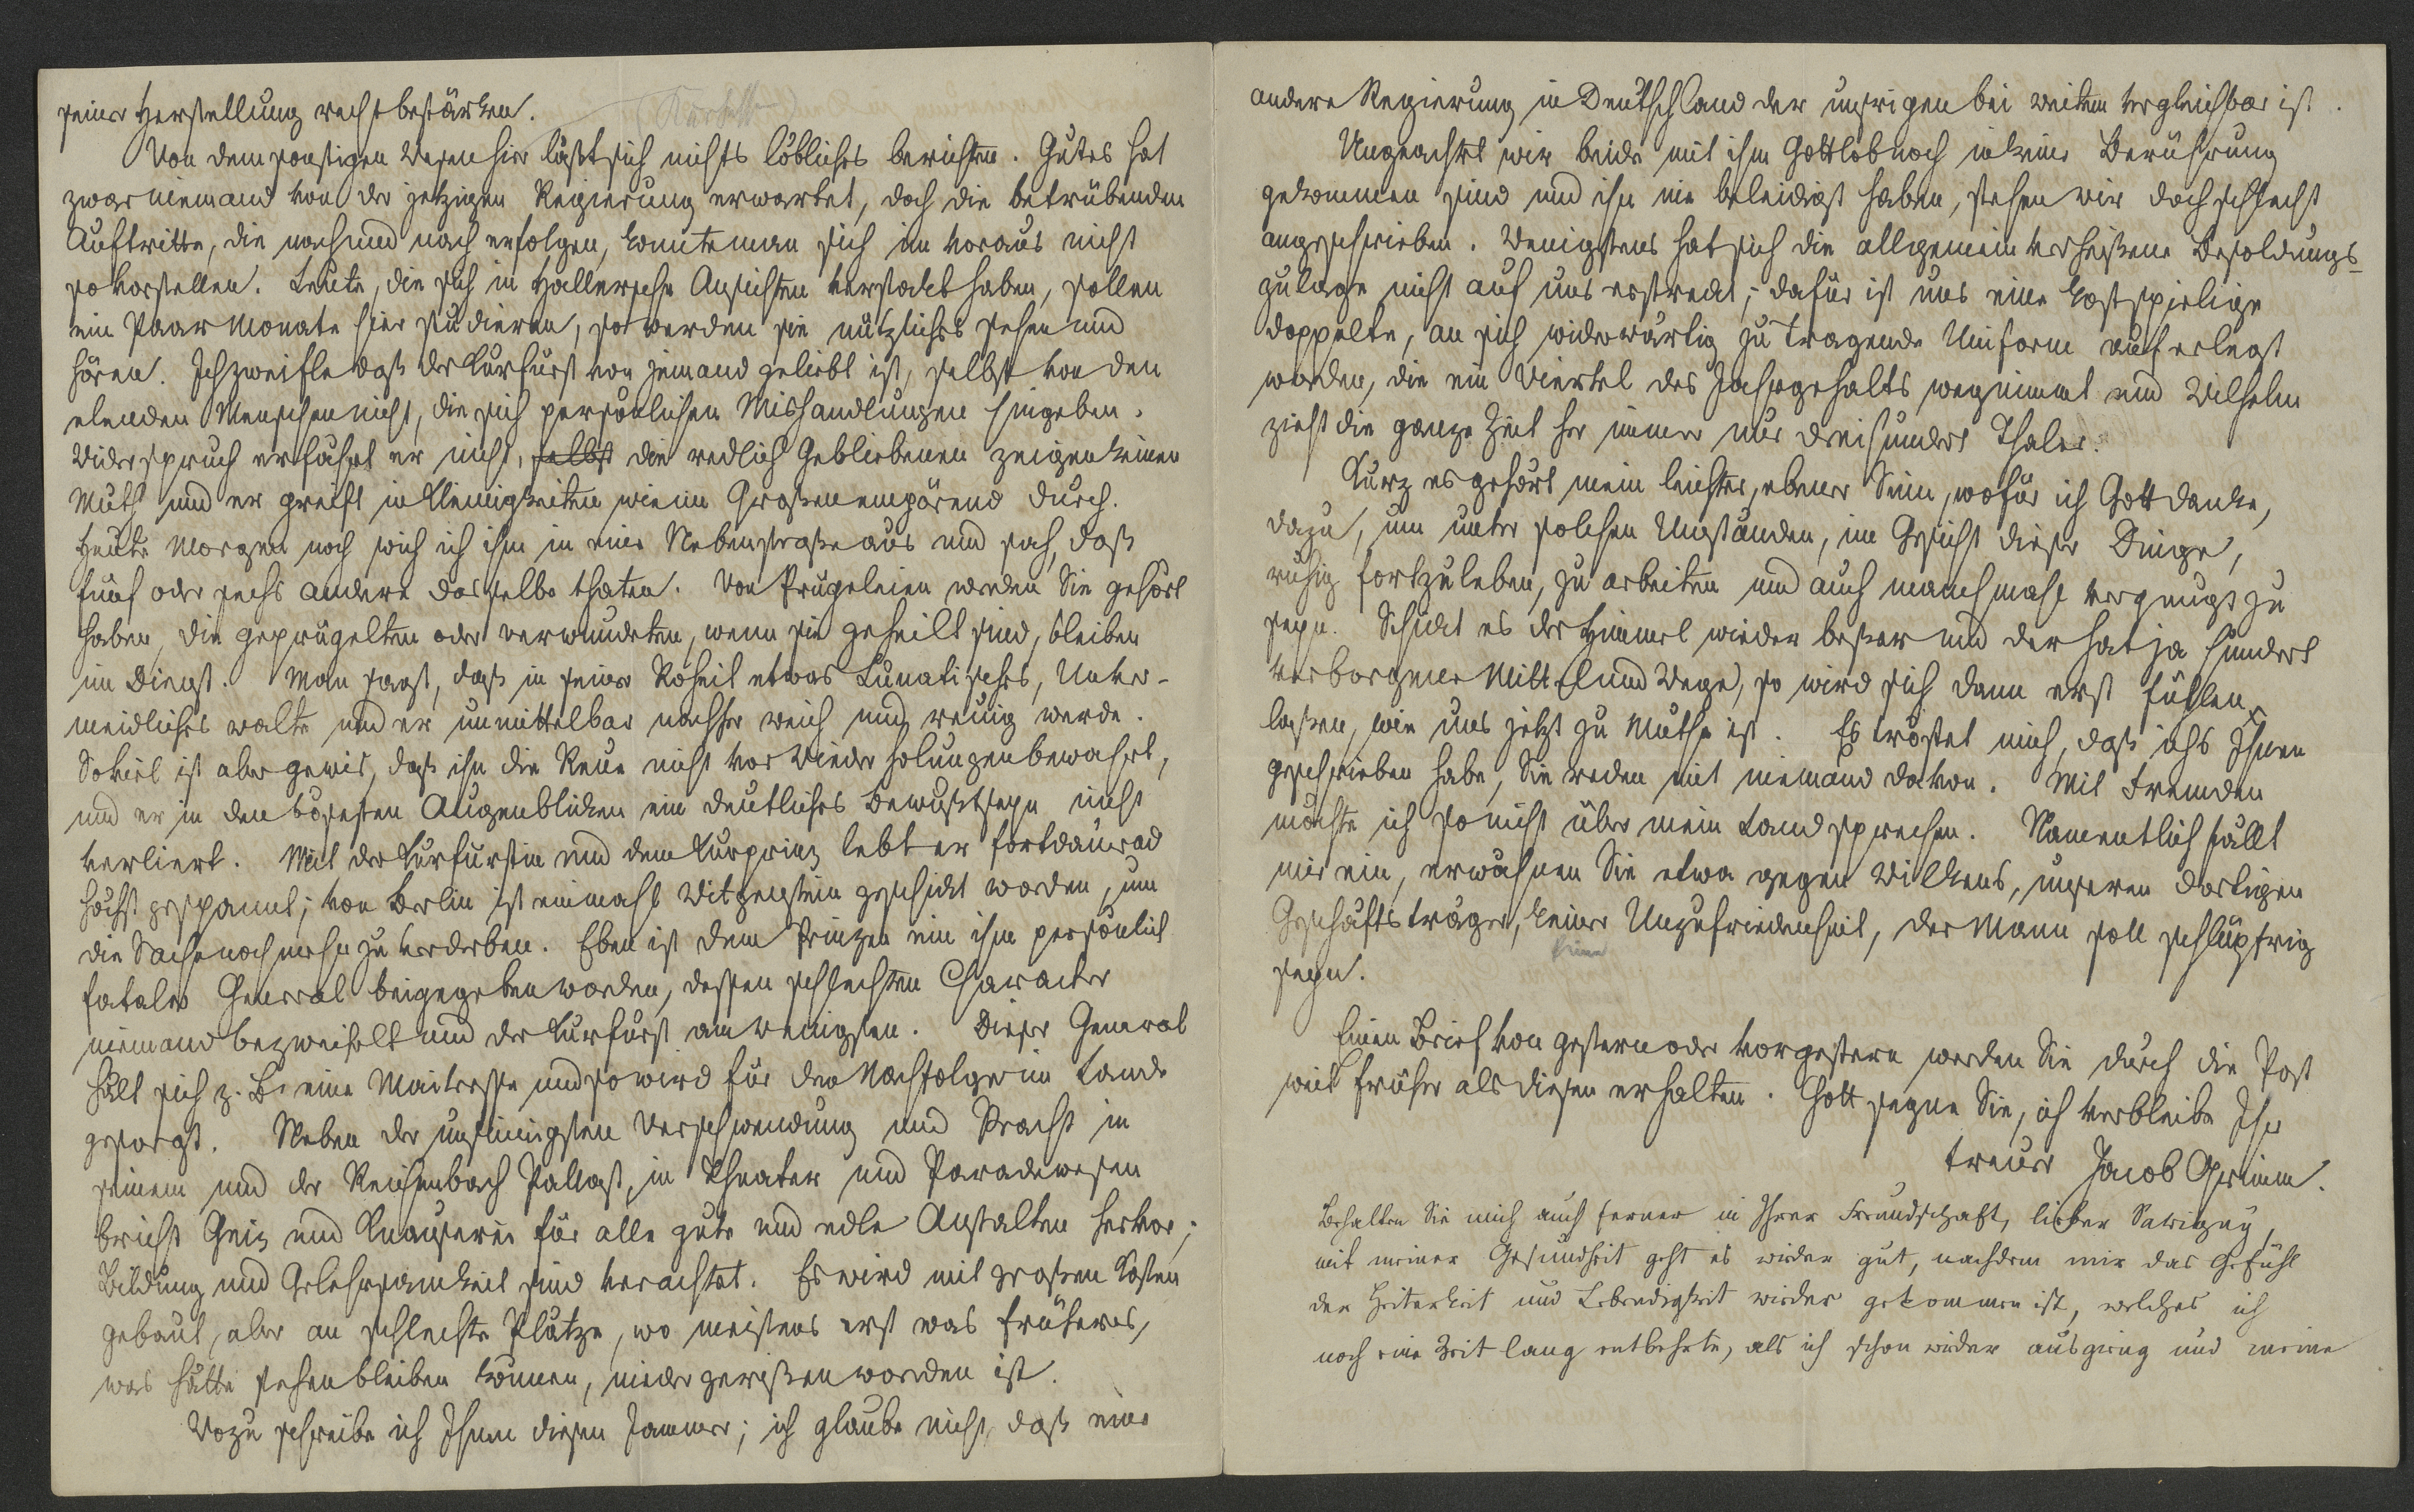 seiner Herstellung recht bestärken.
Von dem sonstigen Wesen hier läßt sich nichts löbliches berichten. Gutes hat
zwar niemand von der jetzigen Regierung erwartet, doch die betrübenden
Auftritte, die nach und nach erfolgen, konnte man sich im voraus nicht
so vorstellen. Leute, die sich in Hallersche Ansichten verstockt haben, sollen
ein Paar Monate hier studieren, so werden sie nützliches sehen und
hören. Ich zweifle daß der Kurfürst von jemand geliebt ist, selbst von den
elenden Menschen nicht, die sich persönlichen Mishandlungen hingeben.
Widerspruch erfährt er nicht, selbst die redlich Gebliebenen zeigen keinen
Muth und er greift in Kleinigkeiten wie im Großen empörend durch.
Heute Morgen noch wich ich ihm in eine Nebenstraße aus und sah, daß
fünf oder sechs andere dasselbe thaten. Von Prügeleien werden Sie gehört
haben, die geprügelten oder verwundeten, wenn sie geheilt sind, bleiben
im Dienst. Man sagt, daß in seiner Roheit etwas Lunatisches, Unver-
meidliches walte und er unmittelbar nachher weich und reuig werde.
Soviel ist aber gewis, daß ihn die Reue nicht vor Wiederholungen bewahrt,
und er in den bösesten Augenblicken ein deutliches Bewußtseyn nicht
verliert. Mit der Kurfürstin und dem Kurprinz lebt er fortdaurend
höchst gespannt; von Berlin ist einmahl Witgenstein geschickt worden, um
die Sache noch mehr zu verderben. Eben ist dem Prinzen ein ihm persönlich
fataler General beigegeben worden, dessen schlechten Character
niemand bezweifelt und der Kurfürst am wenigsten. Dieser General
hält sich z. B. eine Maitresse und so wird für den Nachfolger im Lande
gesorgt. Neben der unsinnigsten Verschwendung und Pracht in
seinem und der Reichenbach Pallast, in Theater und Paradewesen
bricht Geiz und Knauserei für alle gute und edle Anstalten hervor;
Bildung und Gelehrsamkeit sind verachtet. Es wird mit großen Kosten
gebaut, aber an schlechte Plätze, wo meistens erst was früheres,
was hätte stehen bleiben können, niedergerißen worden ist.
Wozu schreibe ich Ihnen diesen Jammer; ich glaube nicht, daß eine
andere Regierung in Deutschland der unsrigen bei weitem vergleichbar ist.
Ungeachtet wir beide mit ihm Gottlob noch in keine Berührung
gekommen sind und ihn nie beleidigt haben, stehen wir doch schlecht
angeschrieben. Wenigstens hat sich die allgemein verheißene Besoldungs-
zulage nicht auf uns erstreckt; dafür ist uns eine kostspielige
doppelte, an sich widerwärtig zu tragende Uniform auferlegt
worden, die ein Viertel des Jahrgehalts wegnimmt und Wilhelm
zieht die ganze Zeit her immer nur dreihundert Thaler.
Kurz es gehört mein leichter, ebener Sinn, wofür ich Gott danke,
dazu, um unter solchen Umständen, im Gesicht dieser Dinge,
ruhig fortzuleben, zu arbeiten und auch manchmahl vergnügt zu
seyn. Schickt es der Himmel wieder beßer und der hat ja hundert
verborgene Mittel und Wege, so wird sich dann erst fühlen
laßen, wie uns jetzt zu Muthe ist. Es tröstet mich, daß ichs Ihnen
geschrieben habe, Sie reden mit niemand davon. Mit Fremden
möchte ich so nicht über mein Land sprechen. Namentlich fällt
mir ein, erwähnen Sie etwa gegen Wilkens, unseren dortigen
Geschäftsträger, keiner Unzufriedenheit, der Mann soll schlüpfrig
seyn.
Einen Brief von gestern oder vorgestern werden Sie durch die Post
weit früher als diesen erhalten. Gott segne Sie, ich verbleibe Ihr
treuer Jacob Grimm.
Behalten Sie mich auch ferner in Ihrer Freundschaft, lieber Savigny,
mit meiner Gesundheit geht es wieder gut, nachdem mir das Gefühl
der Heiterkeit und Lebendigkeit wieder gekommen ist, welches ich
noch eine Zeit lang entbehrte, als ich schon wieder ausgieng und meine